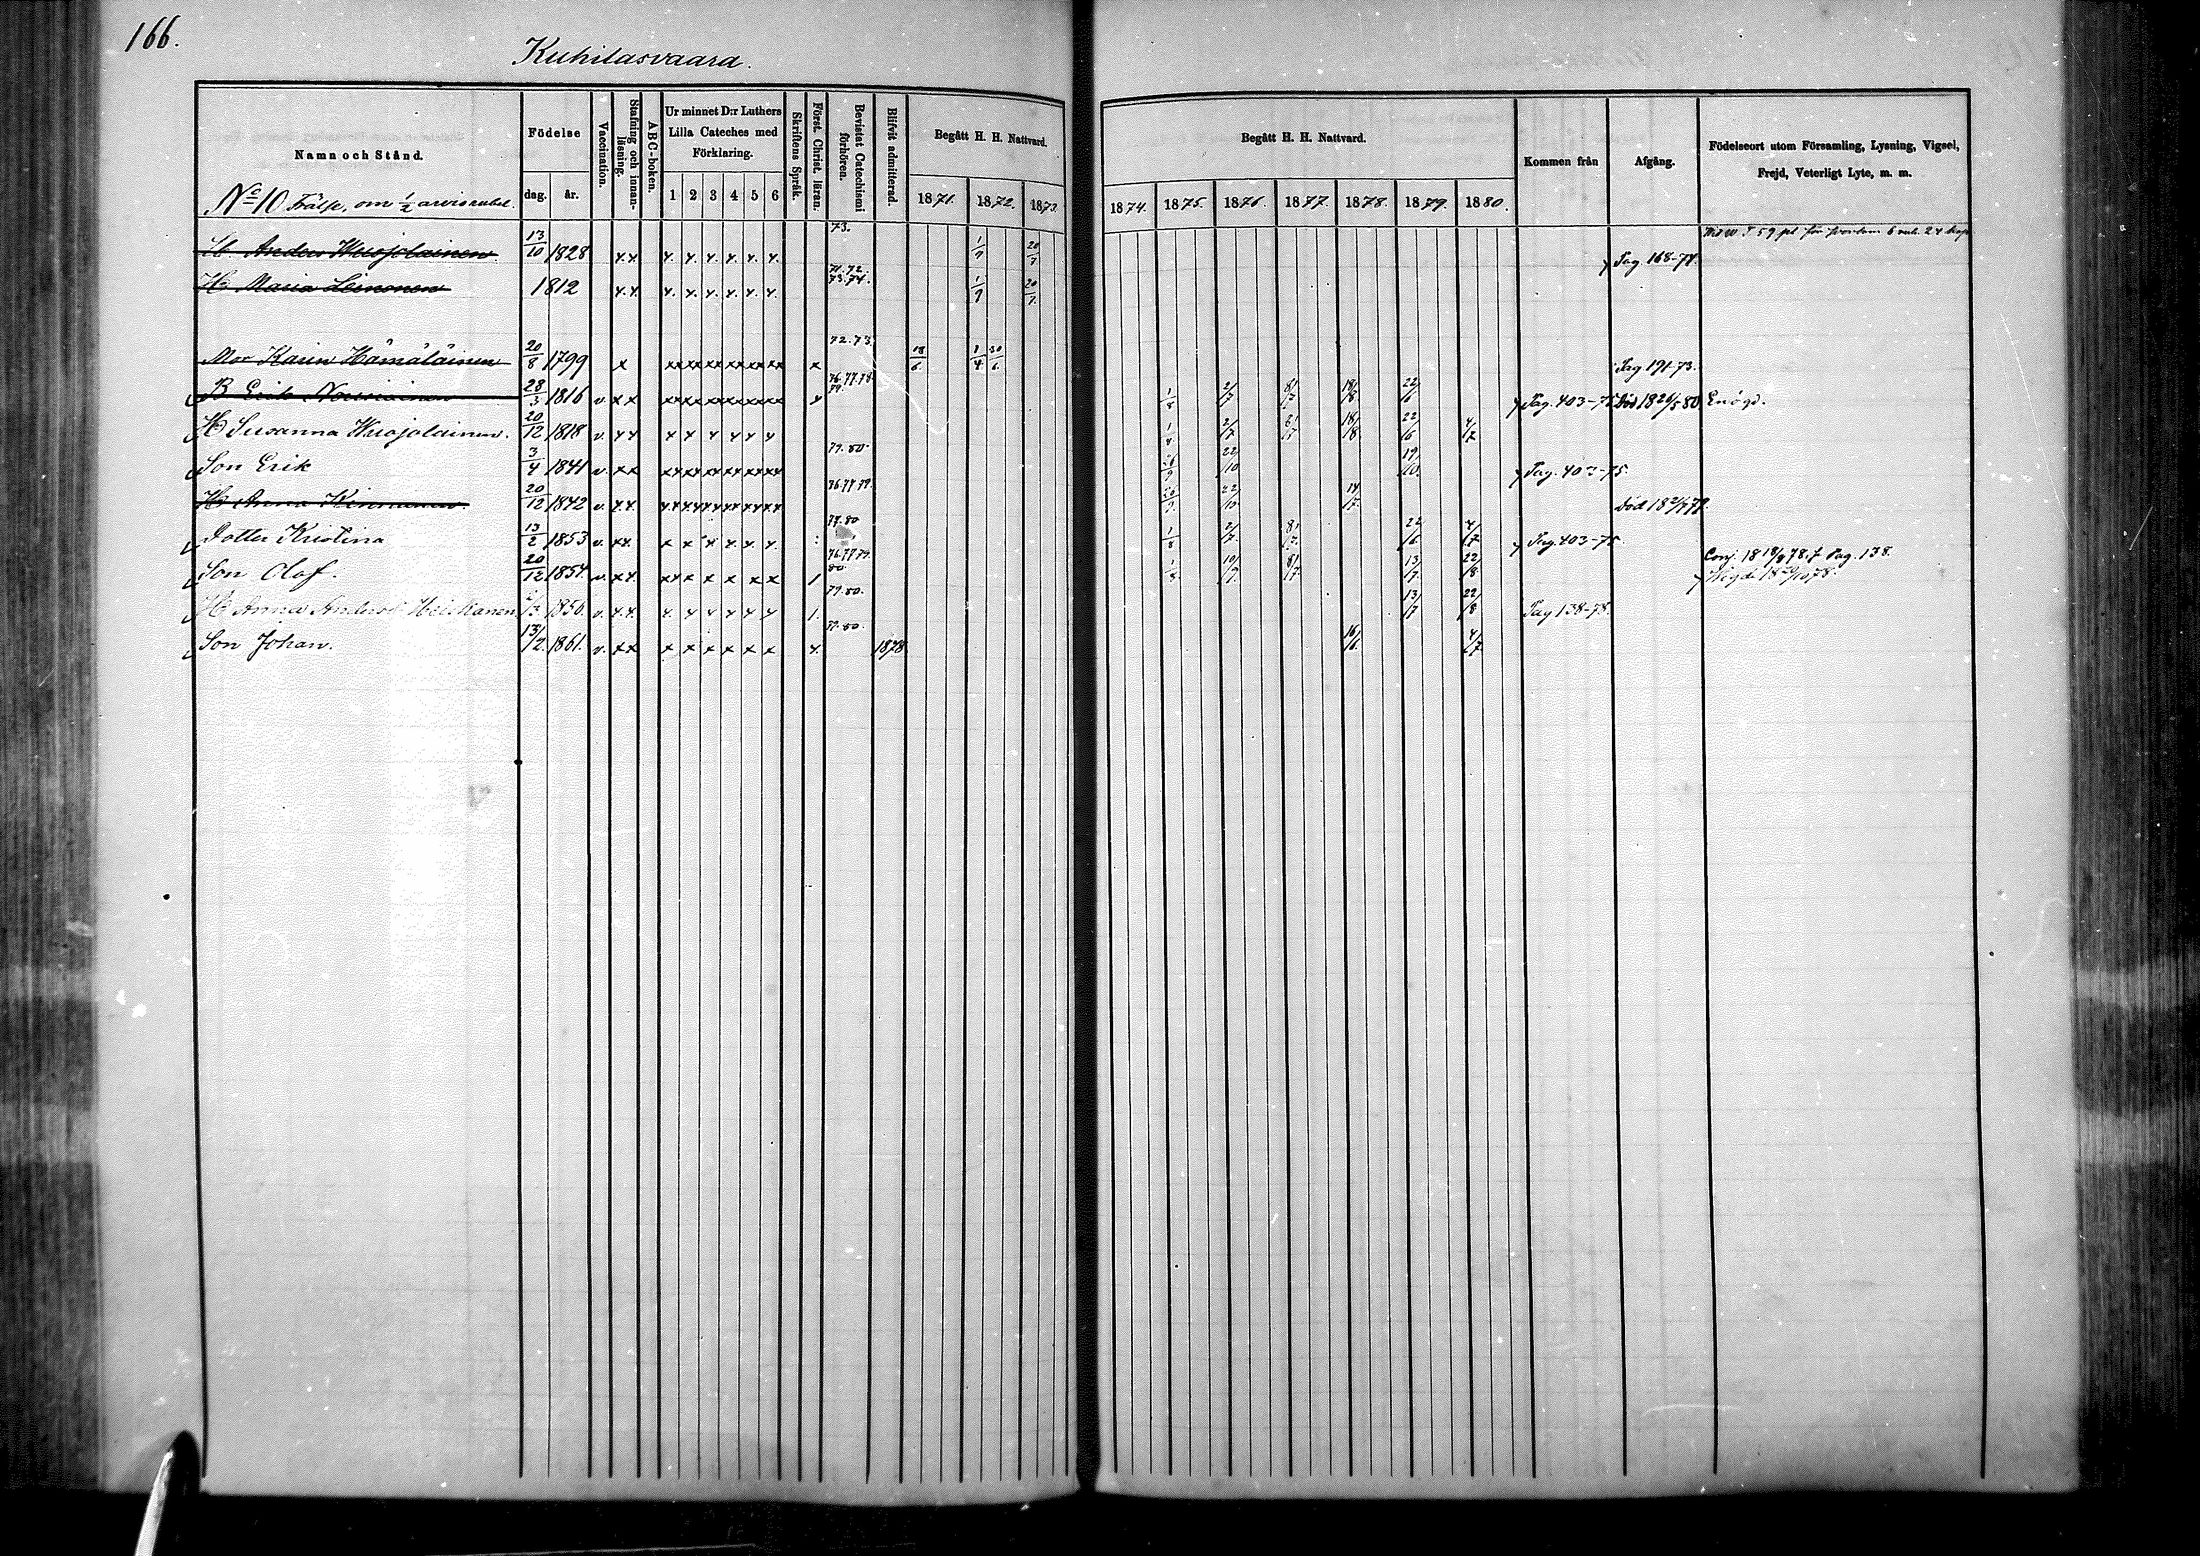 166.
Kuhilasvaara.
Namn och Stånd.
Födelse
dag. år.
Vaccination.
Stafning och innanläsning.
ABC-boken.
Ur minnet D:r Luthers
Lilla Cateches med
Förklaring.
1 2 3 4 5 6
Skriftens Språk.
Först. Christ. läran.
Bevistat Catechismi förhören.
Blifvit admitterad.
Begått H. H. Nattvard.
1871. 1872. 1873.
Begått H. H. Nattvard.
1874. 1875. 1876. 1877. 1878. 1879. 1880.
Kommen från
Afgång.
Födelseort utom Församling, Lysning, Vigsel,
Frejd, Veterligt Lyte, m. m.
No 10 Frälse, om 1/2
Anders Wuojolainen 13/10 1828 x. x. x. x. x. x. x. x. 73. 1/9 20/7 Pag. 168-74.
Maria Leinonen 1812 x. x. x. x. x. x. x. x. 71. 72. 73. 74. 1/9 20/7
Mor Karin Hämäläinen 20/8 1799 x xx xx xx xx xx xx x 72. 73. 18/6 1/4 30/6 Pag 191-73.
B Erik 28/3 1816 v. x x xx xx xx xx xx xx x 76. 77. 78. 79. 1/8 2/7 8/7 18/8 22/6 Pag. 403-75 Död 18 26/5 80. Enögd.
H Susanna Wuojolainen. 20/12 1818 v. x x x x x x x x 1/4 2/7 8/7 18/8 22/6 4/7
Son Erik 3/4 1841 v. x x xx xx xx xx xx xx 79. 80. 26/9 22/10 19/10 Pag. 403-75.
H Anna Kinnunen 20/12 1842 v. x. x. xx xx xx xx xx xx 76. 77. 79. 26/9 22/10 14/7 Död
Dotter Kristina 13/2 1853 v. x x. x x x x. x. x. 77. 80 1/8 2/7 8/7 22/6 4/7 Pag. 403-75.
Son Olof. 20/12 1854. v. x x. xx x x x x x 1 76. 77. 79. 80. 1/8 10/9 8/7 13/7 22/8 Conj. 18 18/8 78. Pag. 138.
Vigde 18 20/10 78.
H Anna Andersd. Heiskanen /3 1856. v. x. x. x x x x x x 1. 79. 80. 13/7 22/8 Pag 138-78.
Son Johan. 13/2. 1861. v. x x x x x x x x x. 79. 80. 1878 16/6. 4/7